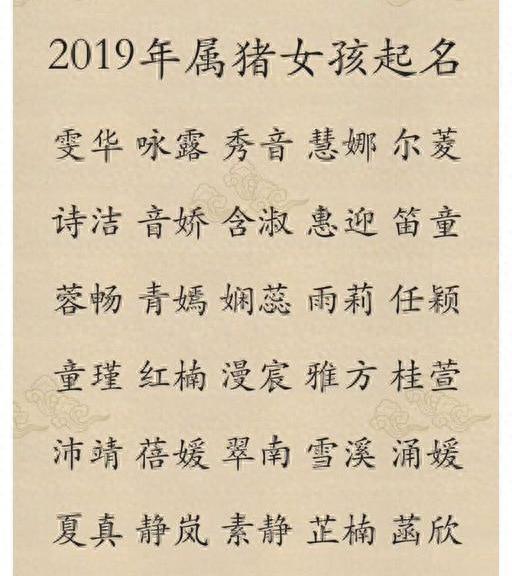 2019年属猪女孩起名
雯华 咏露 秀音 慧娜 尔菱
诗洁 音娇 含淑 惠迎 笛童
蓉畅 青嫣 娴蕊 雨莉 任颖
童瑾 红楠 漫宸 雅方 桂萱
沛靖 蓓媛 翠南 雪溪 涌媛
夏真 静岚 素静 芷楠 菡欣